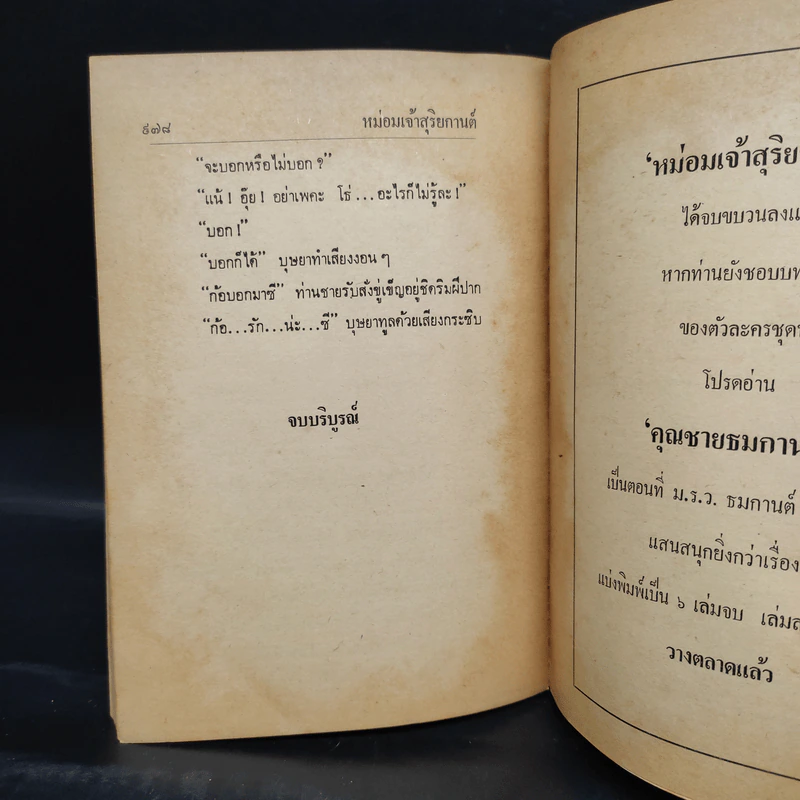 ๙๗๘ หม่อมเจ้าสุริยกานต์
“จะบอกหรือไม่บอก ?”
“แน้ ! อุ๊ย ! อย่าเพคะ โธ่ ... อะไรก็ไม่รู้ละ !”
“บอก !”
“บอกก็ได้” บุษยาทำเสียงงอน ๆ
“ก้อบอกมาซี” ท่านชายรับสั่งขู่เข็ญอยู่ชิดริมฝีปาก
“ก้อ...รัก...น่ะ...ซี” บุษยาทูลด้วยเสียงกระซิบ
จบบริบูรณ์
‘หม่อมเจ้าสุริย
ได้จบขบวนลงแ
หากท่านยังชอบบท
ของตัวละครชุด
โปรดอ่าน
‘คุณชายธมกาน
เป็นตอนที่ ม.ร.ว. ธมกานต์
แสนสนุกยิ่งกว่าเรื่อง
แบ่งพิมพ์เป็น ๖ เล่มจบ เล่ม
วางตลาดแล้ว